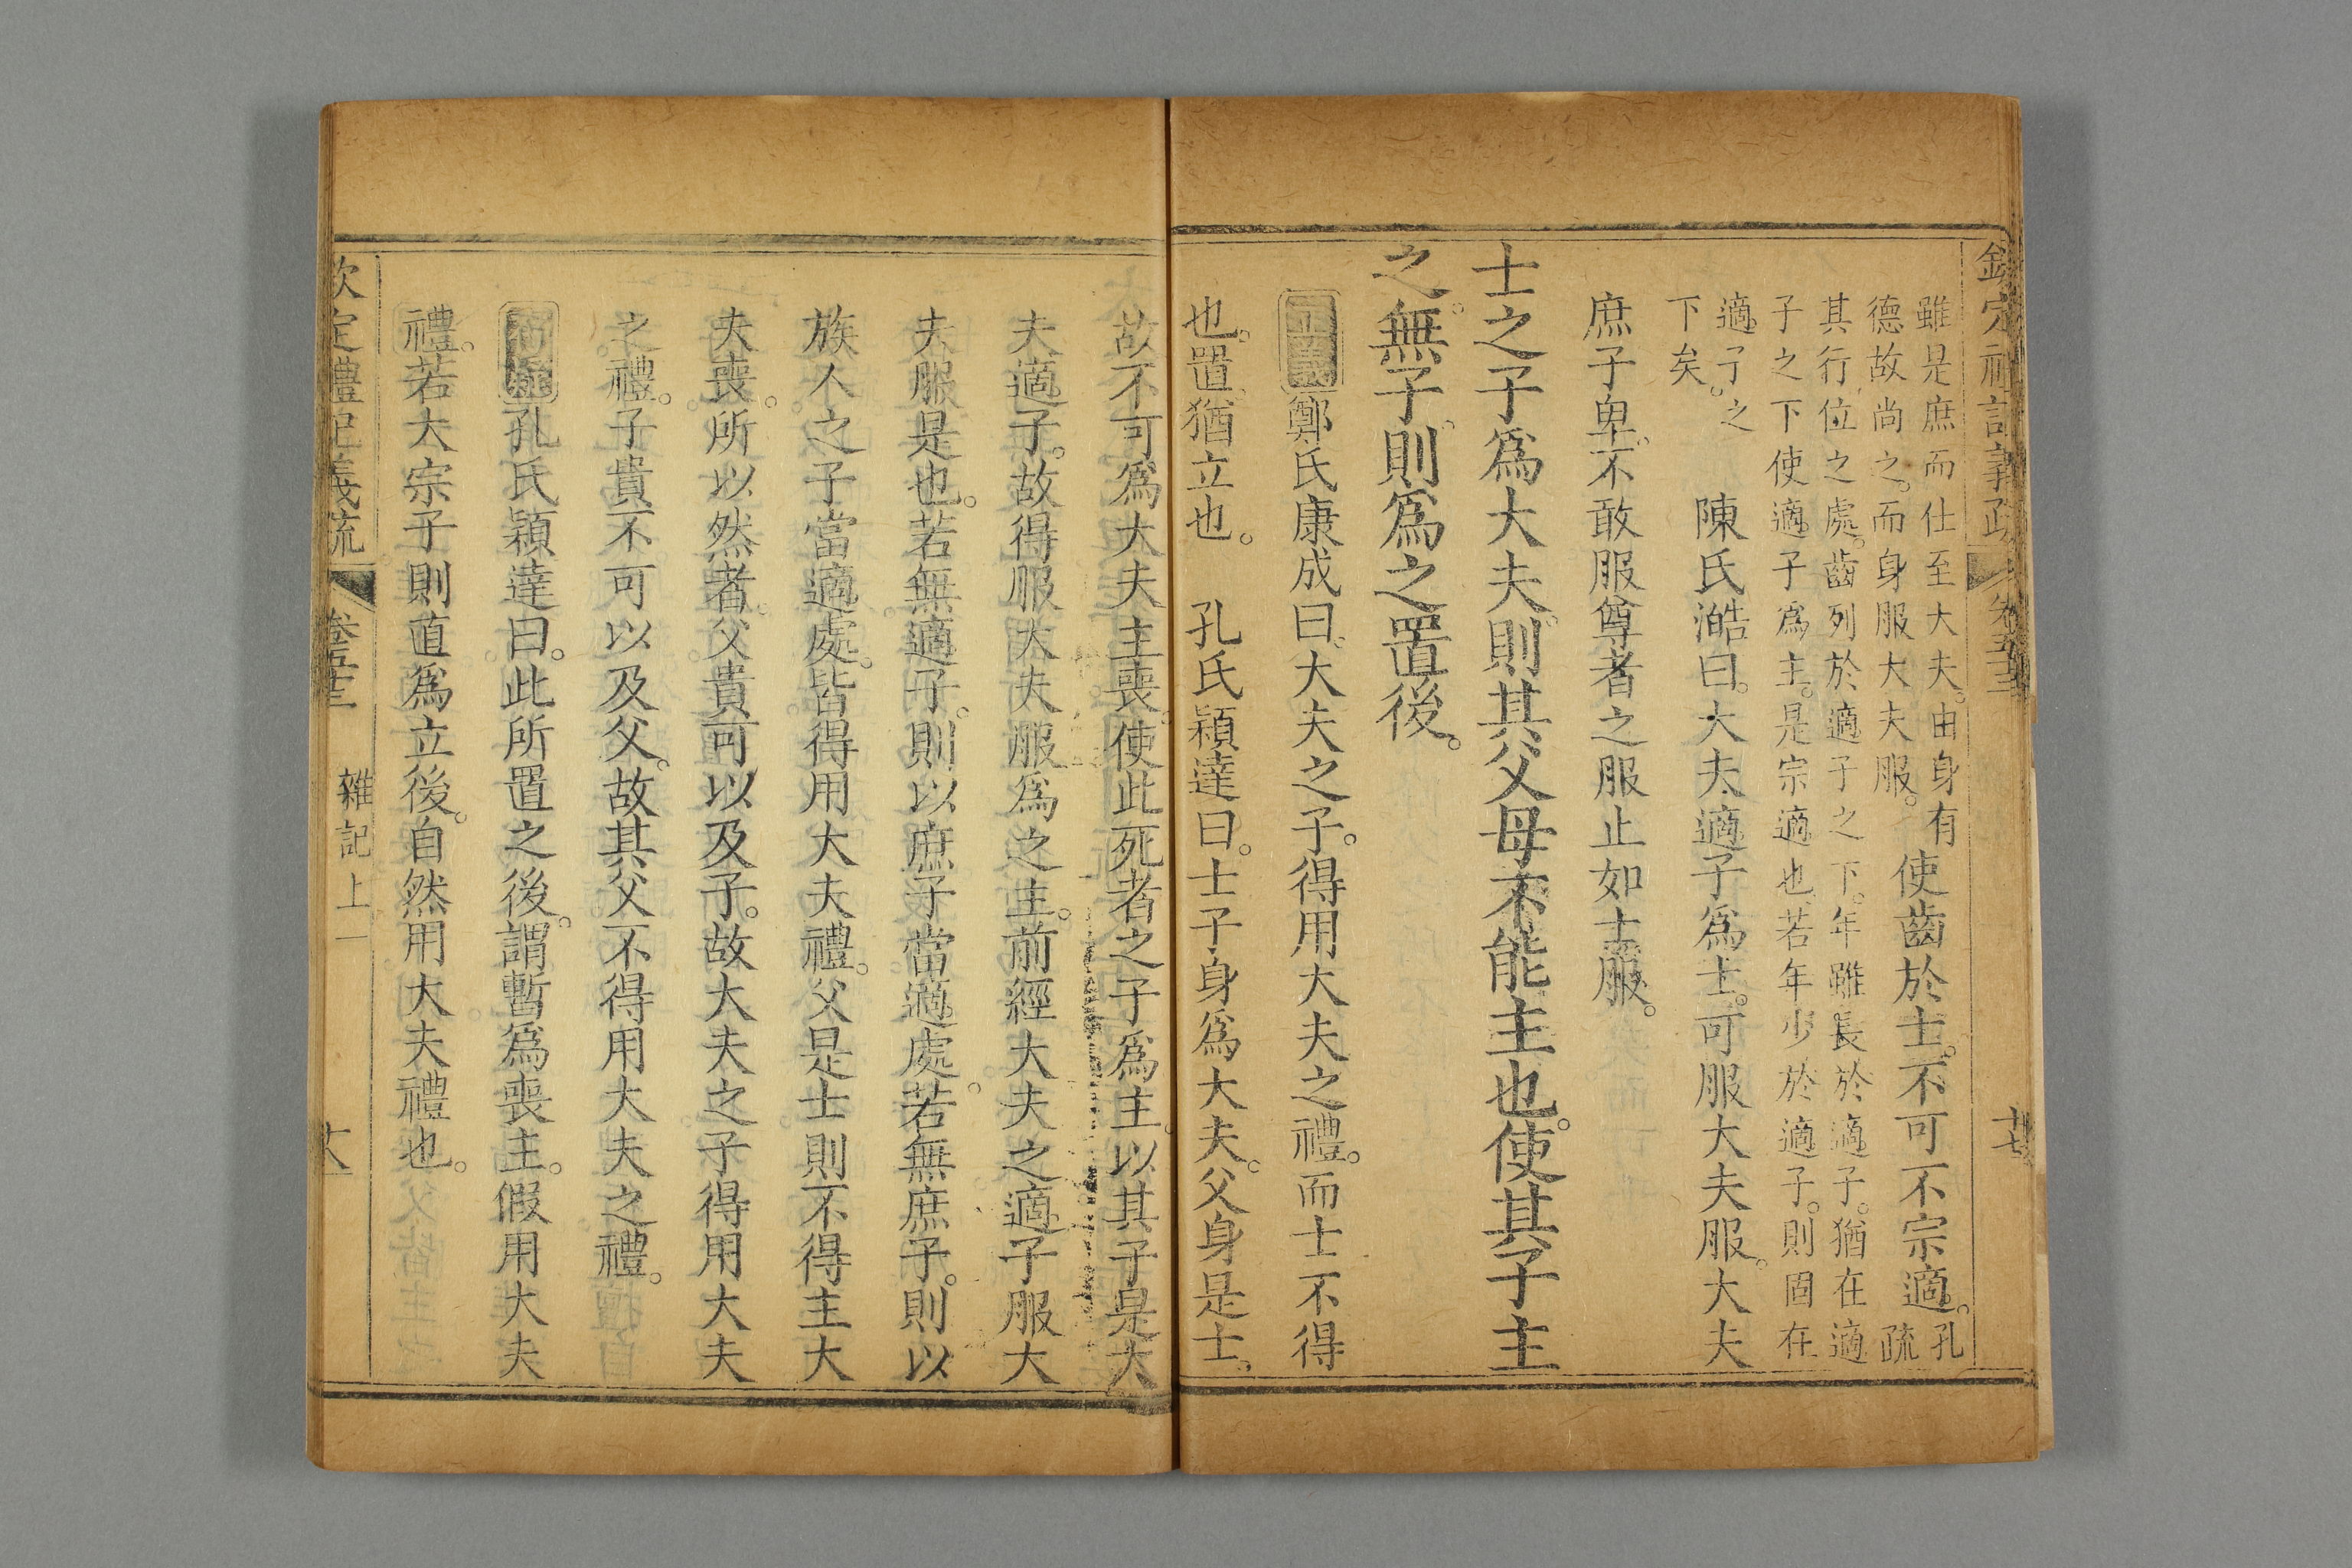 欽定禮記義疏 卷五十三 十七
雖是庶而仕至大夫。由身有
德故尚之。而身服大夫服。
使齒於士。不可不宗適。
孔
疏
其行位之處。齒列於適子之下。年雖長於適子。猶在適
子之下使適子爲主。是宗適也。若年少於適子。則固在
適子之
下矣。
陳氏澔曰。大夫適子爲士。可服大夫服。大夫
庶子卑。不敢服尊者之服止如士服。
士之子爲大夫。則其父母不能主也。使其子主
之。無子。則爲之置後。
正義鄭氏康成曰。大夫之子。得用大夫之禮。而士不得
也。置。猶立也。 孔氏穎達曰。士子身爲大夫。父身是士。
故不可爲大夫主喪。使此死者之子爲主。以其子是大
夫適子。故得服大夫服爲之主。前經大夫之適子服大
夫服是也。若無適子。則以庶子當適處。若無庶子。則以
族人之子當適處。皆得用大夫禮。父是士則不得主大
夫喪。所以然者。父貴可以及子。故大夫之子得用大夫
之禮。子貴不可以及父。故其父不得用大夫之禮。
孔氏穎達曰。此所置之後。謂暫爲喪主。假用大夫
禮。若大宗子則直爲立後。自然用大夫禮也。
欽定禮記義疏 卷五十三 雜記上一 十八